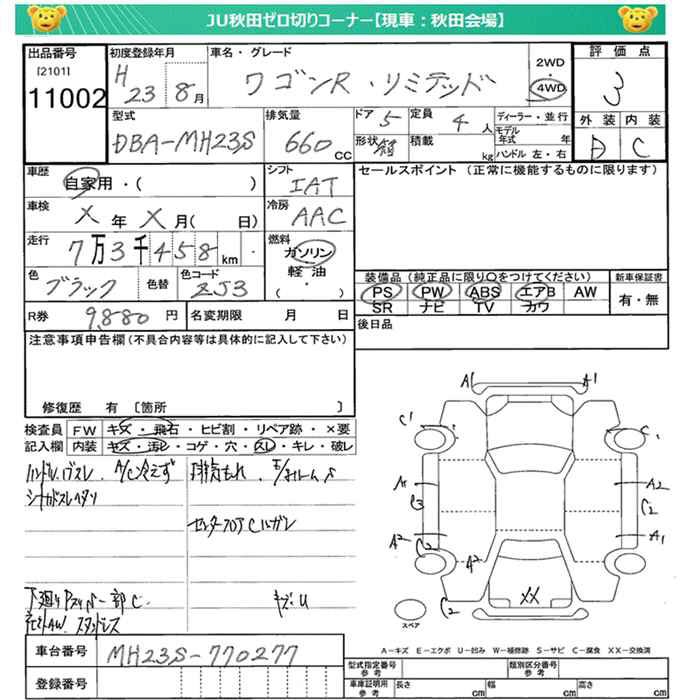 JU秋田ゼロ切りコーナー【現車：秋田会場】
出品番号
[2101]
11002
初度登録年月
H 23 8月
車名・グレード
ワゴンR・リミテッド
2WD
・
4WD
評価点
3
型式
DBA-MH23S
排気量
660 CC
ドア 5
定員 4 人
形状 箱
積載 kg
ディーラー・並行
モデル年式 年
ハンドル 左・右
外装 内装
D C
車歴
自家用・( )
シフト
IAT
車検
X 年 X 月( 日)
冷房
AAC
走行
7万3千458km
燃料
ガソリン
軽油
( ・ )
色 ブラック
色替
色コード
ZJ3
R券 9,880 円
名変期限 月 日
セールスポイント (正常に機能するものに限ります)
装備品(純正品に限り〇をつけてください)
PS PW ABS エアB AW
SR ナビ TV カワ
新車保証書
有・無
後日品
注意事項申告欄(不具合内容等は具体的に記入して下さい)
修復歴 有 〔箇所 〕
検査員記入欄
FW キズ・飛石・ヒビ割・リペア跡・×要
内装 キズ・汚レ・コゲ・穴・スレ・キレ・破レ
ハンドル、
A/C冷えず
排気もれ
センターフロアCハガレ
下廻り
一部C
キズ・U
スタッドレス
A1 A1
C1 C1
A1 A2
C3 C2
A2 A1
C2 A2
XX
C2
スペア
A－キズ E－エクボ U－凹み W－補修跡 S－サビ C－腐食 XX－交換済
車台番号 MH23S-770277
登録番号
型式指定番号 参考
類別区分番号 参考
車庫証明用 参考
長さ cm 幅 cm 高さ cm